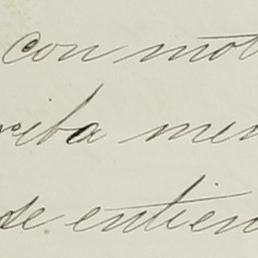 con mot
riba men
se entien